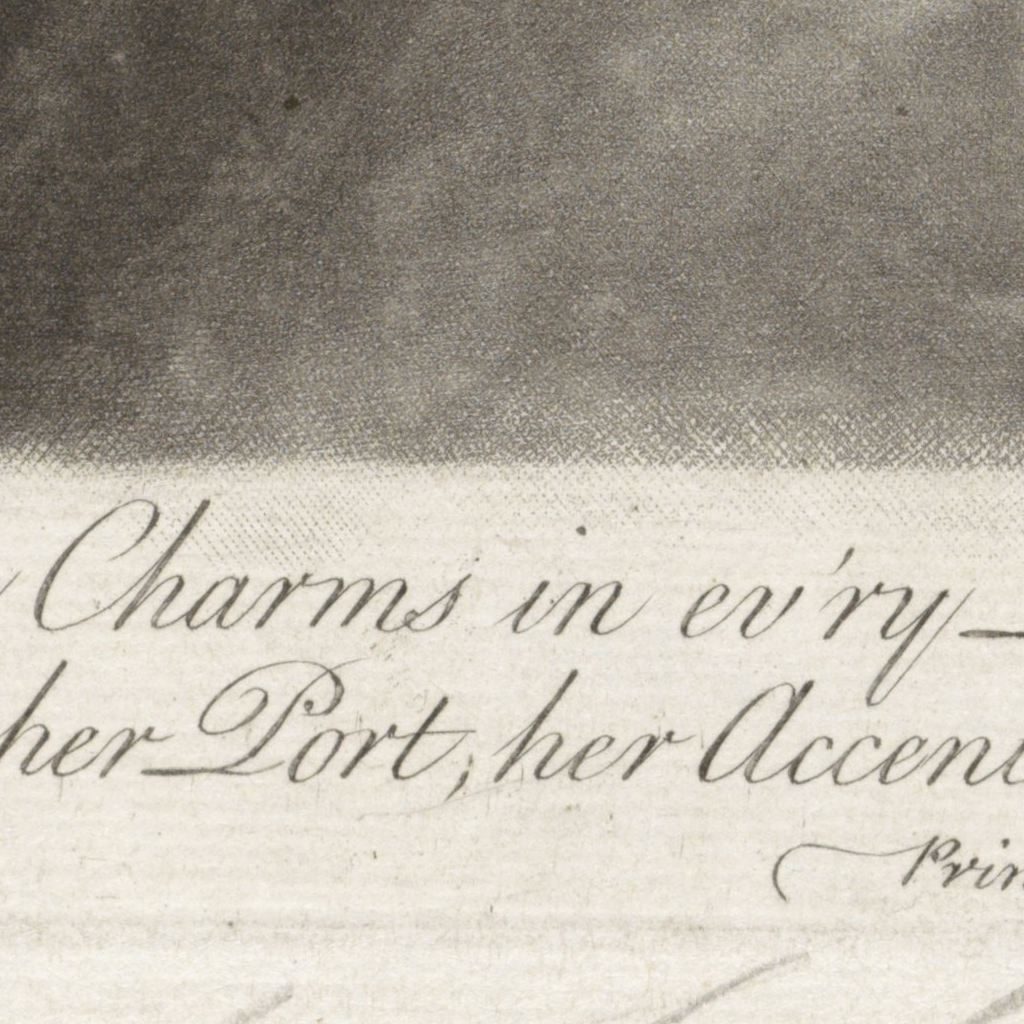 Charms in ev'ry
her Port, her Accent
Prin